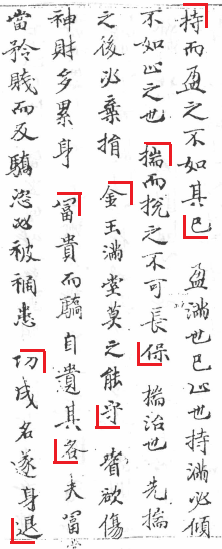 持而盈之不如其已 盈滿也已止也持滿必傾
不如止之也 揣而挩之不可長保 揣治也先揣
之後必棄捐 金玉滿堂莫之能守 嗜欲傷
神財多累身 冨貴而驕自遺其咎 夫冨
當矜賤而及驕恣必被禍患 功成名遂身退